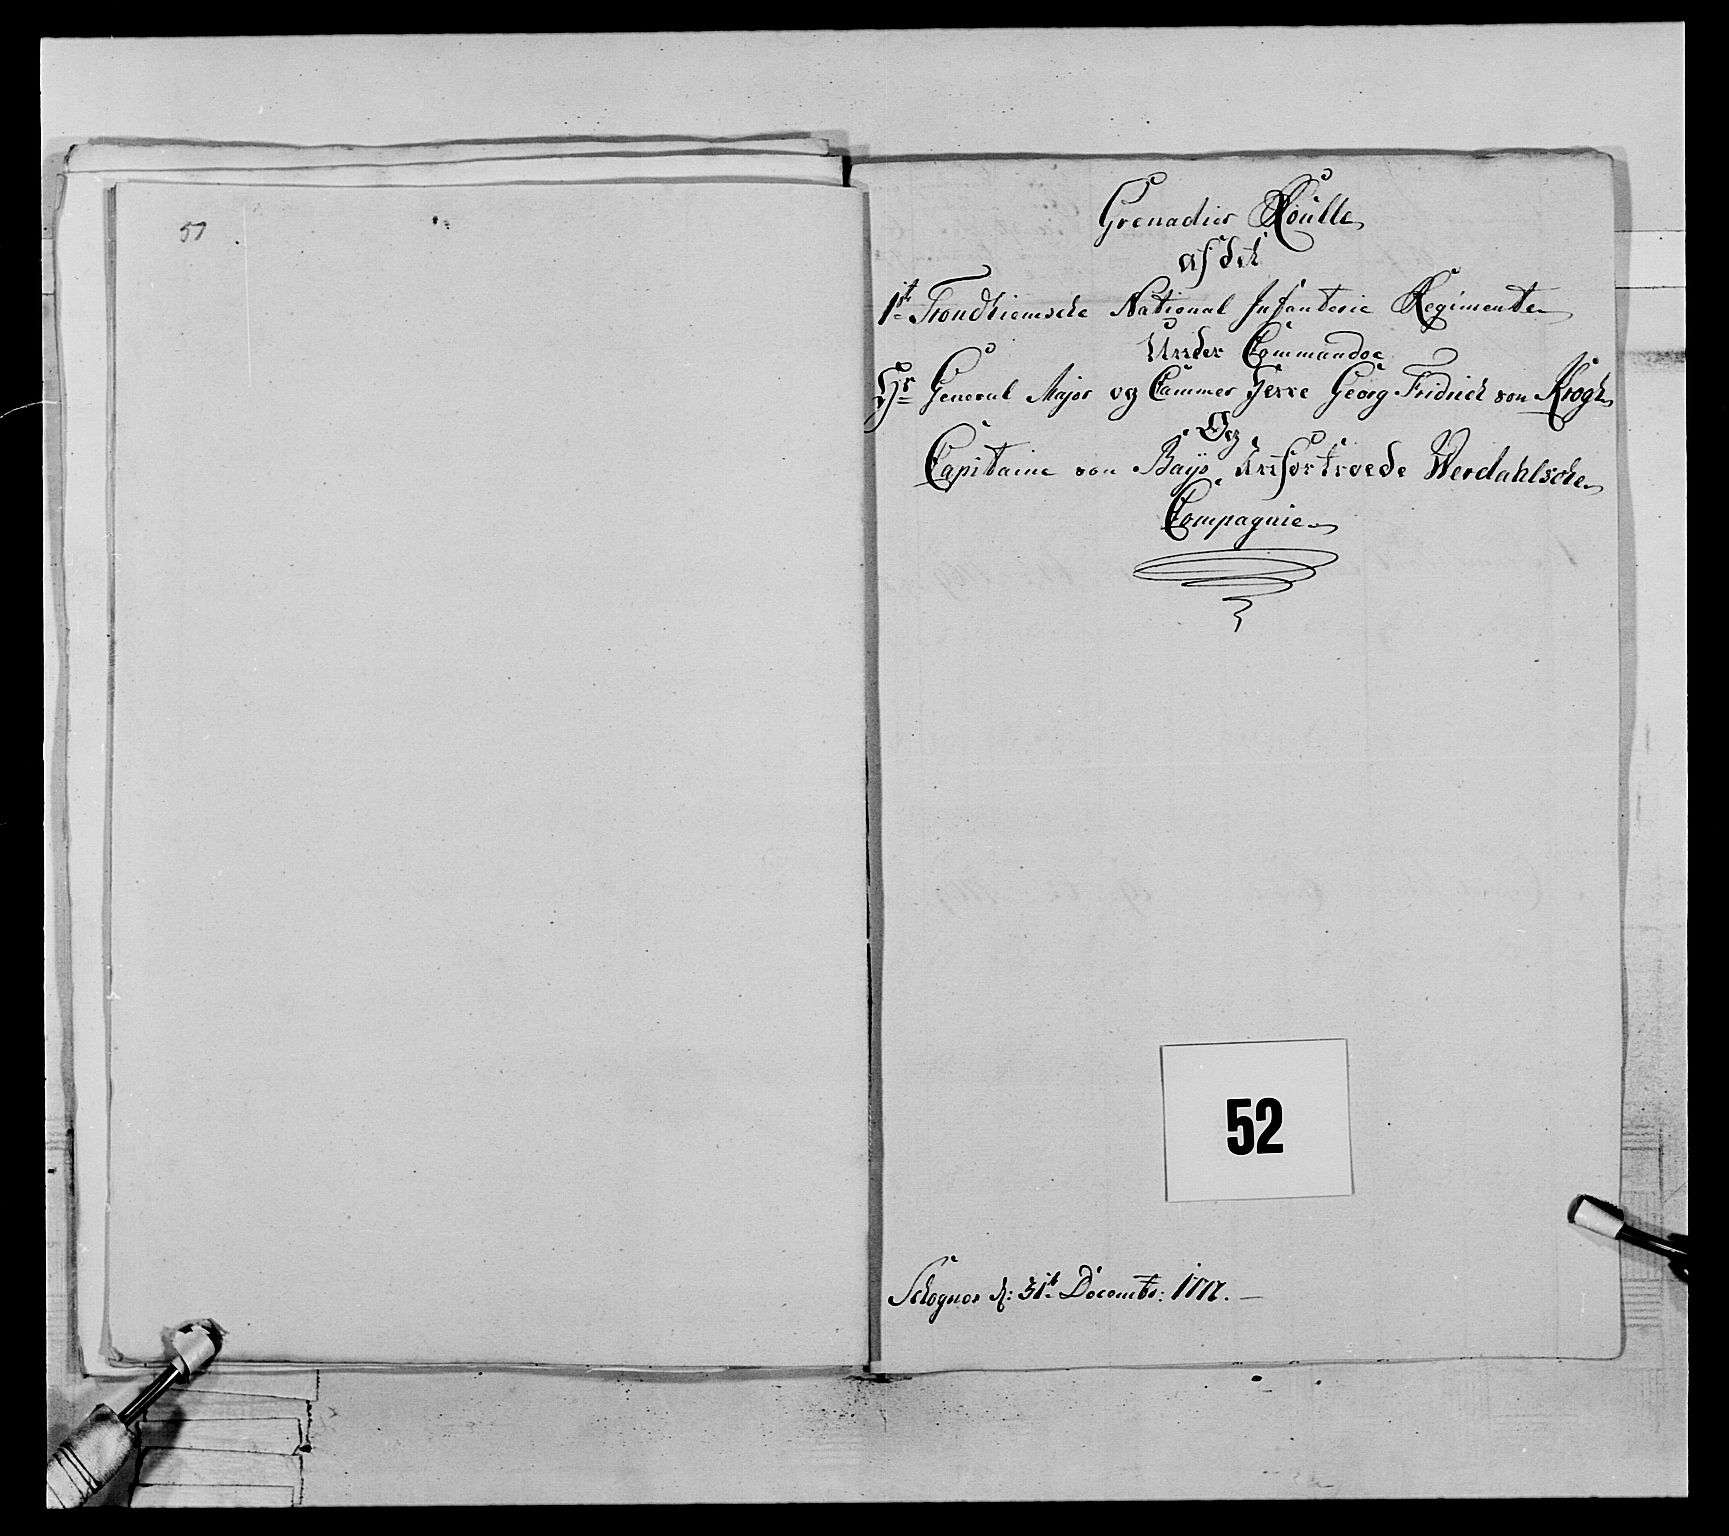 51
Grenadier Roulle
af det
1te Trondhiemsche National Infanterie Regimente
Under Commandoe
Hr General Major og Cammer Herre Georg Fridrich von Krogh
Og
Capitaine von Bays Anfortroede Werdahlsche
Compagnie
52
d: 31te Decembr: 1777.